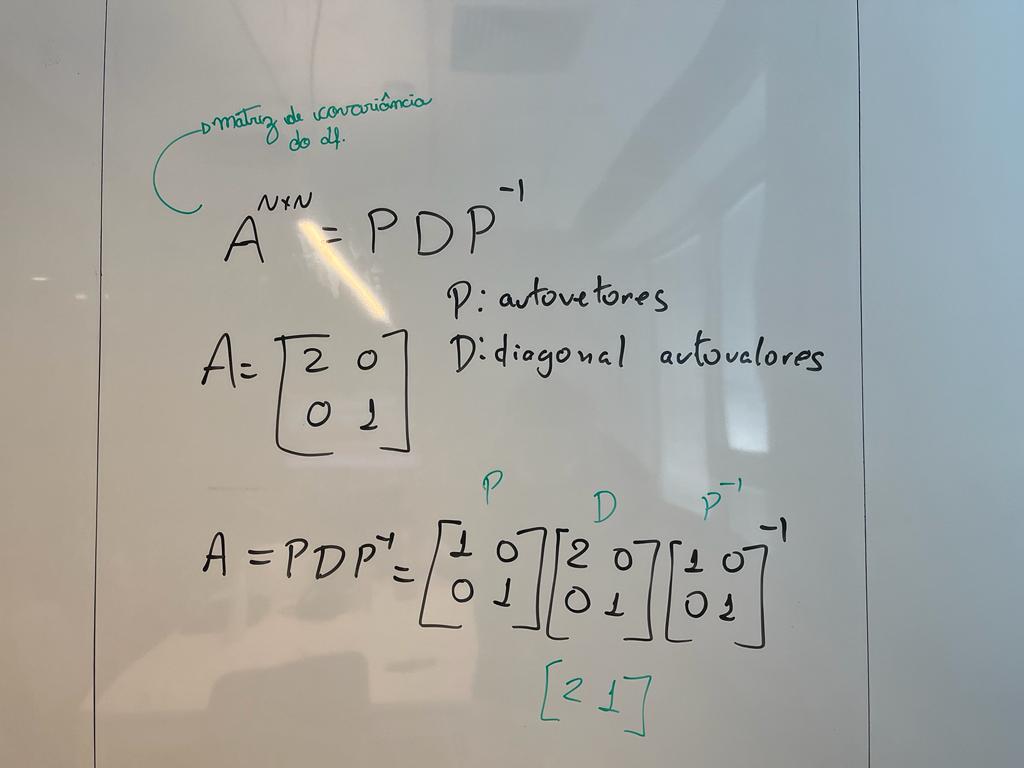 matriz de covariância
do df.
A^{N×N} = PDP^{-1}
P: autovetores
D: diagonal autovalores
A = [2 0
0 1]
P D P^{-1}
A = PDP^{-1} = [1 0 [2 0 [1 0
0 1] 0 1] 0 1]^{-1}
[2 1]